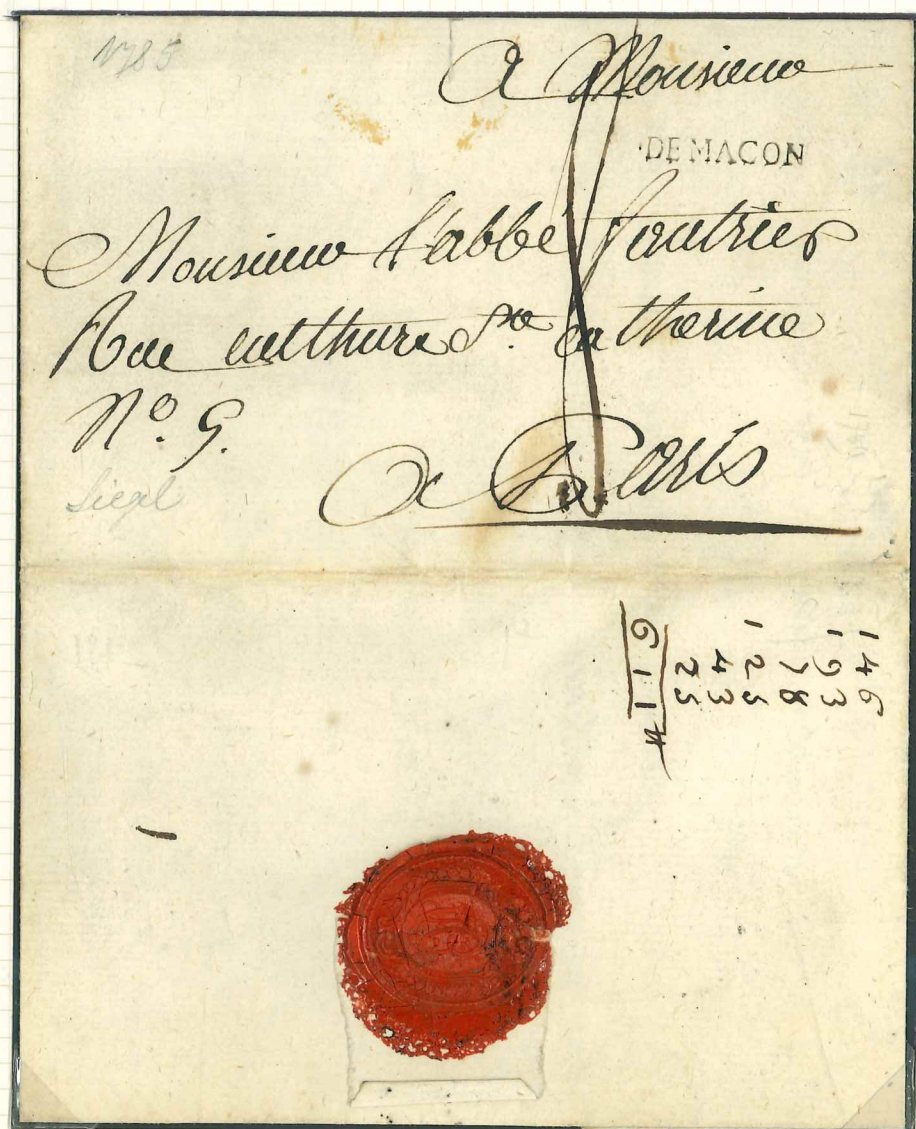 1785
A Monsieur
DE MACON
Monsieur l'abbé fautrier
Rue cultture Ste Catherine
N.º 9.
Siegl
A Paris
146
193
178
125
43
25
611